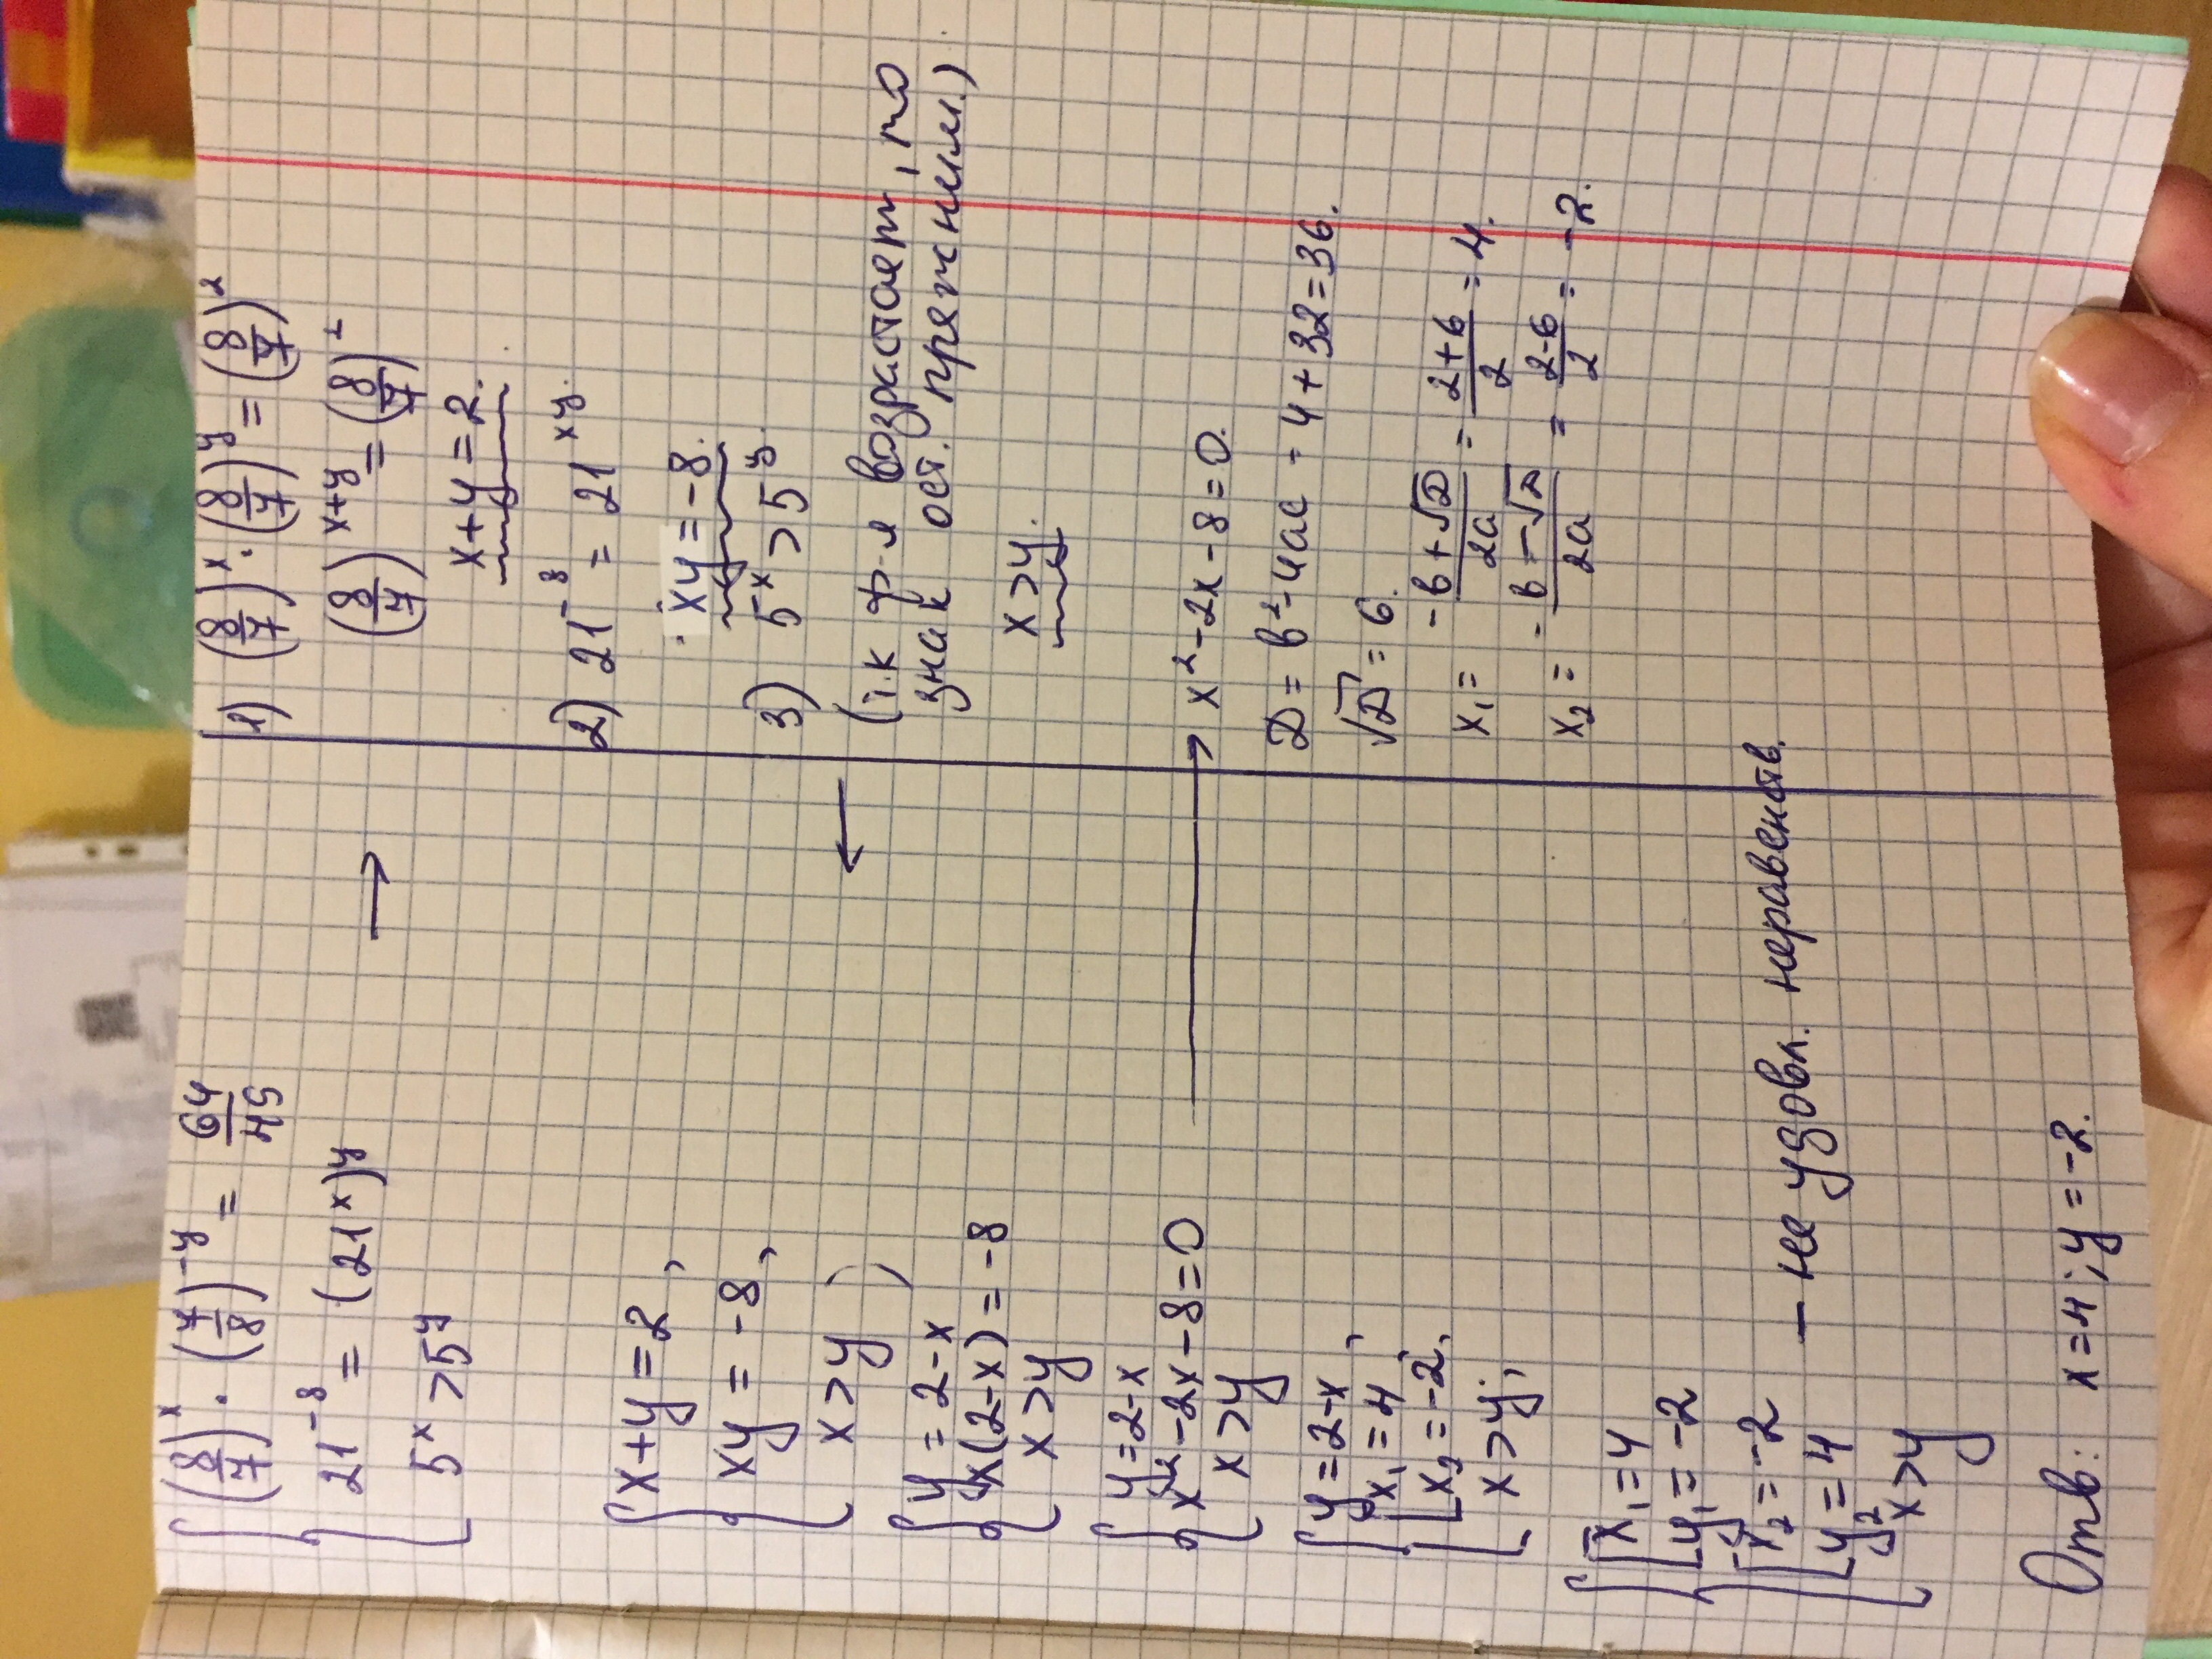 (8/7)^x · (7/8)^-y = 64/49
21^-8 = (21^x)^y
5^x > 5^y
x+y=2,
xy=-8,
x>y
y=2-x
x(2-x)=-8
x>y
y=2-x
x²-2x-8=0
x>y
y=2-x,
x₁=4,
x₂=-2,
x>y;
x₁=4
y₁=-2
x₂=-2 — не удовл. неравенств.
y₂=4
x>y
Отв: x=4; y=-2.
1) (8/7)^x · (8/7)^y = (8/7)²
(8/7)^x+y = (8/7)²
x+y=2.
2) 21^-8 = 21^xy.
xy=-8.
3) 5^x > 5^y
(т.к ф-я возрастает, то
знак ост. прежним.)
x>y.
x²-2x-8=0.
D=b²-4ac - 4+32=36.
√D=6.
x₁= (-b+√D)/2a = (2+6)/2 = 4.
x₂= (-b-√D)/2a = (2-6)/2 = -2.